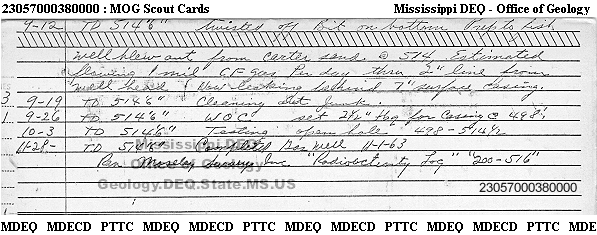 23057000380000 : MOG Scout Cards Mississippi DEQ - Office of Geology
9-12 TD 514'6" twisted off Bit on bottom Prep to fish
Well blew out from carter sand @ 514 Estimated
flowing 1 mil CF gas Per day thru 2" line from
well head. Now leaking behind 7" surface casing.
3 9-19 TD 514'6" Cleaning out Junk.
1 9-26 TD 514'6" W.O.C. set 2½" tbg for casing @ 498'
10-3 TD 514'6" Testing open hole 498-514½
11-28- TD 514'6" Completed Gas well 11-1-63
Ran Surveys Inc. "Radioactivity Log" "200-516"
Mississippi DEQ
Office of Geology
Geology.DEQ.State.MS.US
23057000380000
MDEQ MDECD PTTC MDEQ MDECD PTTC MDEQ MDECD PTTC MDEQ MDECD PTTC MDE